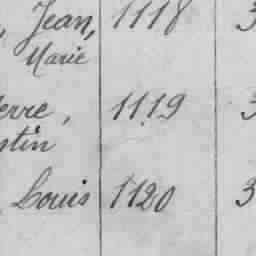 , Jean, 1118 3
Marie
erre, 1119 3
stin
Louis 1120 3